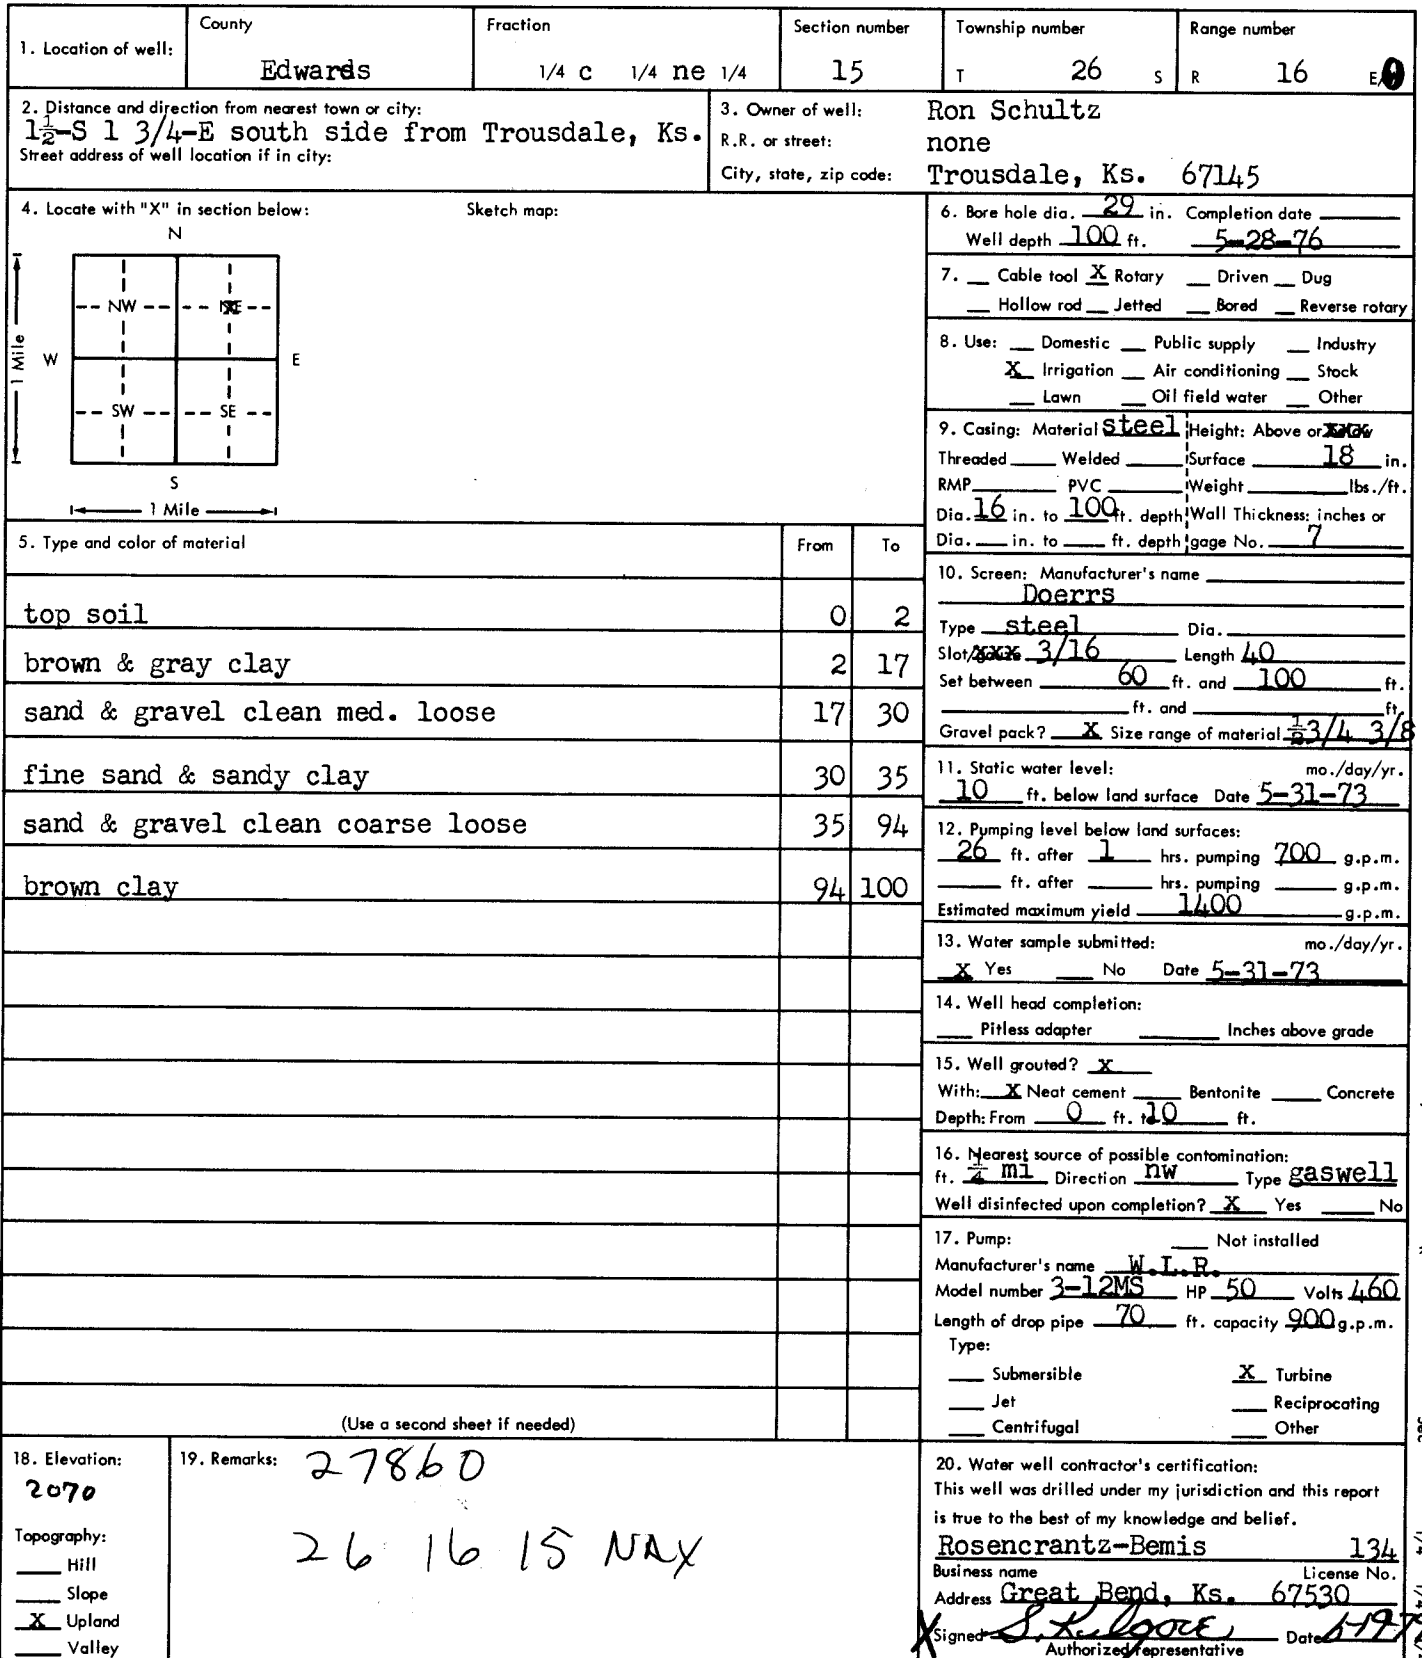 1. Location of well: County Edwards Fraction 1/4 c 1/4 ne 1/4 Section number 15 Township number T 26 S Range number R 16 E/
2. Distance and direction from nearest town or city:
1½-S 1 3/4-E south side from Trousdale, Ks.
Street address of well location if in city:
3. Owner of well: Ron Schultz
R.R. or street: none
City, state, zip code: Trousdale, Ks. 67145
4. Locate with "X" in section below: Sketch map:
N
NW NE
W E
SW SE
S
1 Mile
1 Mile
5. Type and color of material From To
top soil 0 2
brown & gray clay 2 17
sand & gravel clean med. loose 17 30
fine sand & sandy clay 30 35
sand & gravel clean coarse loose 35 94
brown clay 94 100
(Use a second sheet if needed)
6. Bore hole dia. 29 in. Completion date
Well depth 100 ft. 5-28-76
7. Cable tool X Rotary Driven Dug
Hollow rod Jetted Bored Reverse rotary
8. Use: Domestic Public supply Industry
X Irrigation Air conditioning Stock
Lawn Oil field water Other
9. Casing: Material steel Height: Above or
Threaded Welded Surface 18 in.
RMP PVC Weight lbs./ft.
Dia. 16 in. to 100 ft. depth Wall Thickness: inches or
Dia. in. to ft. depth gage No. 7
10. Screen: Manufacturer's name
Doerrs
Type steel Dia.
Slot/ 3/16 Length 40
Set between 60 ft. and 100 ft.
ft. and ft.
Gravel pack? X Size range of material ½ 3/4 3/8
11. Static water level: mo./day/yr.
10 ft. below land surface Date 5-31-73
12. Pumping level below land surfaces:
26 ft. after 1 hrs. pumping 700 g.p.m.
ft. after hrs. pumping g.p.m.
Estimated maximum yield 1400 g.p.m.
13. Water sample submitted: mo./day/yr.
X Yes No Date 5-31-73
14. Well head completion:
Pitless adapter Inches above grade
15. Well grouted? X
With: X Neat cement Bentonite Concrete
Depth: From 0 ft. to 10 ft.
16. Nearest source of possible contomination:
ft. ¼ mi Direction nw Type gaswell
Well disinfected upon completion? X Yes No
17. Pump: Not installed
Manufacturer's name W.L.R.
Model number 3-12MS HP 50 Volts 460
Length of drop pipe 70 ft. capacity 900 g.p.m.
Type:
Submersible X Turbine
Jet Reciprocating
Centrifugal Other
18. Elevation:
2070
Topography:
Hill
Slope
X Upland
Valley
19. Remarks: 27860
26 16 15
20. Water well contractor's certification:
This well was drilled under my jurisdiction and this report
is true to the best of my knowledge and belief.
Rosencrantz-Bemis 134
Business name License No.
Address Great Bend, Ks. 67530
X Signed S. Kilgore Date
Authorized representative